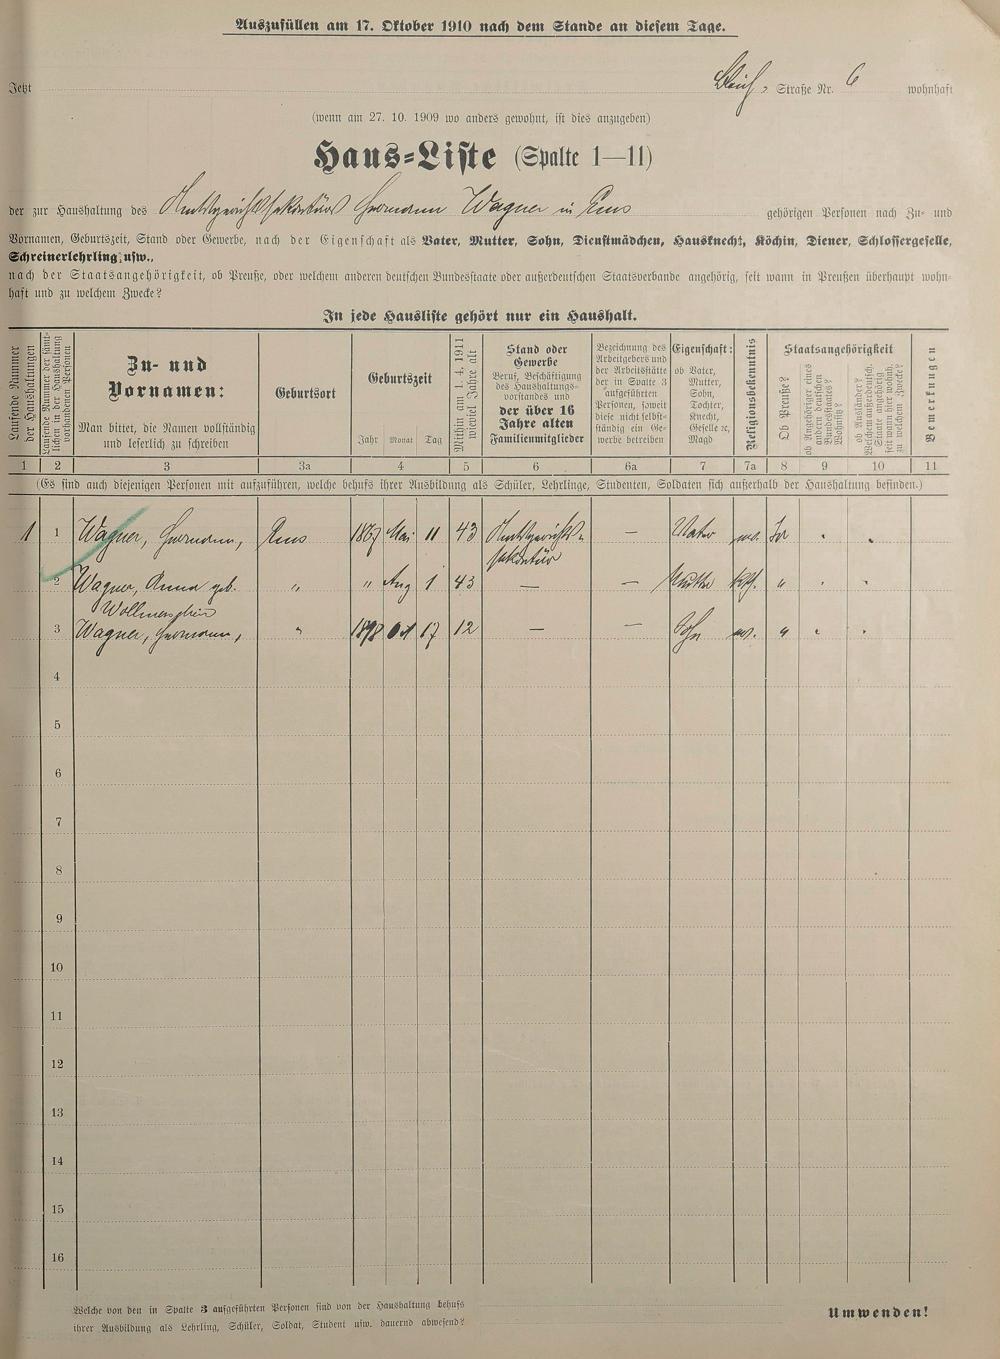 Auszufüllen am 17. Oktober 1910 nach dem Stande an diesem Tage.
Jetzt Straße Nr. 6 wohnhaft
(wenn am 27. 10. 1909 wo anders gewohnt, ist dies anzugeben)
Haus-Liste (Spalte 1—11)
der zur Haushaltung des Amtsgerichtssekretärs Hermann Wagner in Ems gehörigen Personen nach Zu- und
Vornamen, Geburtszeit, Stand oder Gewerbe, nach der Eigenschaft als Vater, Mutter, Sohn, Dienstmädchen, Hausknecht, Köchin, Diener, Schlossergeselle,
Schreinerlehrling usw.,
nach der Staatsangehörigkeit, ob Preuße, oder welchem anderen deutschen Bundesstaate oder außerdeutschen Staatsverbande angehörig, seit wann in Preußen überhaupt wohn-
haft und zu welchem Zwecke?
In jede Hausliste gehört nur ein Haushalt.
Laufende Nummer
der Haushaltungen
Laufende Nummer der sämt-
lichen in der Haushaltung
vorhandenen Personen
Zu- und
Vornamen:
Man bittet, die Namen vollständig
und leserlich zu schreiben
Geburtsort
Geburtszeit
Jahr Monat Tag
Mithin am 1. 4. 1911
wieviel Jahre alt
Stand oder
Gewerbe
Beruf, Beschäftigung
des Haushaltungs-
vorstandes und
der über 16
Jahre alten
Familienmitglieder
Bezeichnung des
Arbeitgebers und
der Arbeitsstätte
der in Spalte 3
aufgeführten
Personen, soweit
diese nicht selbst-
ständig ein Ge-
werbe betreiben
Eigenschaft:
ob Vater,
Mutter,
Sohn,
Tochter,
Knecht,
Geselle ec,
Magd
Religionsbekenntnis
Staatsangehörigkeit
Ob Preuße?
ob Angehöriger eines
andern deutschen
Bundesstaates?
Wohnsitz?
ob Ausländer?
Welchem außerdeutsch.
Staate angehörig
seit wann hier wohnh.
zu welchem Zwecke?
Bemerkungen
1 2 3 3a 4 5 6 6a 7 7a 8 9 10 11
(Es sind auch diejenigen Personen mit aufzuführen, welche behufs ihrer Ausbildung als Schüler, Lehrlinge, Studenten, Soldaten sich außerhalb der Haushaltung befinden.)
1 1 Wagner, Hermann, Ems 1867 Mai 11 43 Amtsgerichts- — Vater ev. Ja " "
sekretär
2 Wagner, Anna geb. " " Aug 1 43 — — Mutter kath. " " "
3 Wagner, Hermann, " 1898 Okt 17 12 — — Sohn ev. " " "
4
5
6
7
8
9
10
11
12
13
14
15
16
Welche von den in Spalte 3 aufgeführten Personen sind von der Haushaltung behufs
ihrer Ausbildung als Lehrling, Schüler, Soldat, Student usw. dauernd abwesend?
Umwenden!